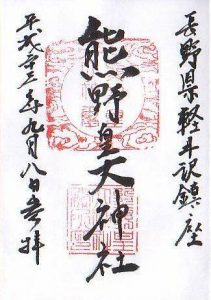 長野県軽井沢鎮座
熊野皇大神社
平成廿三年九月八日奉拝